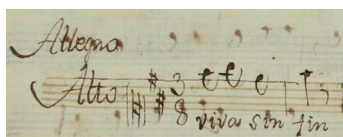 Allegro
Alto 3/8
viva sin fin